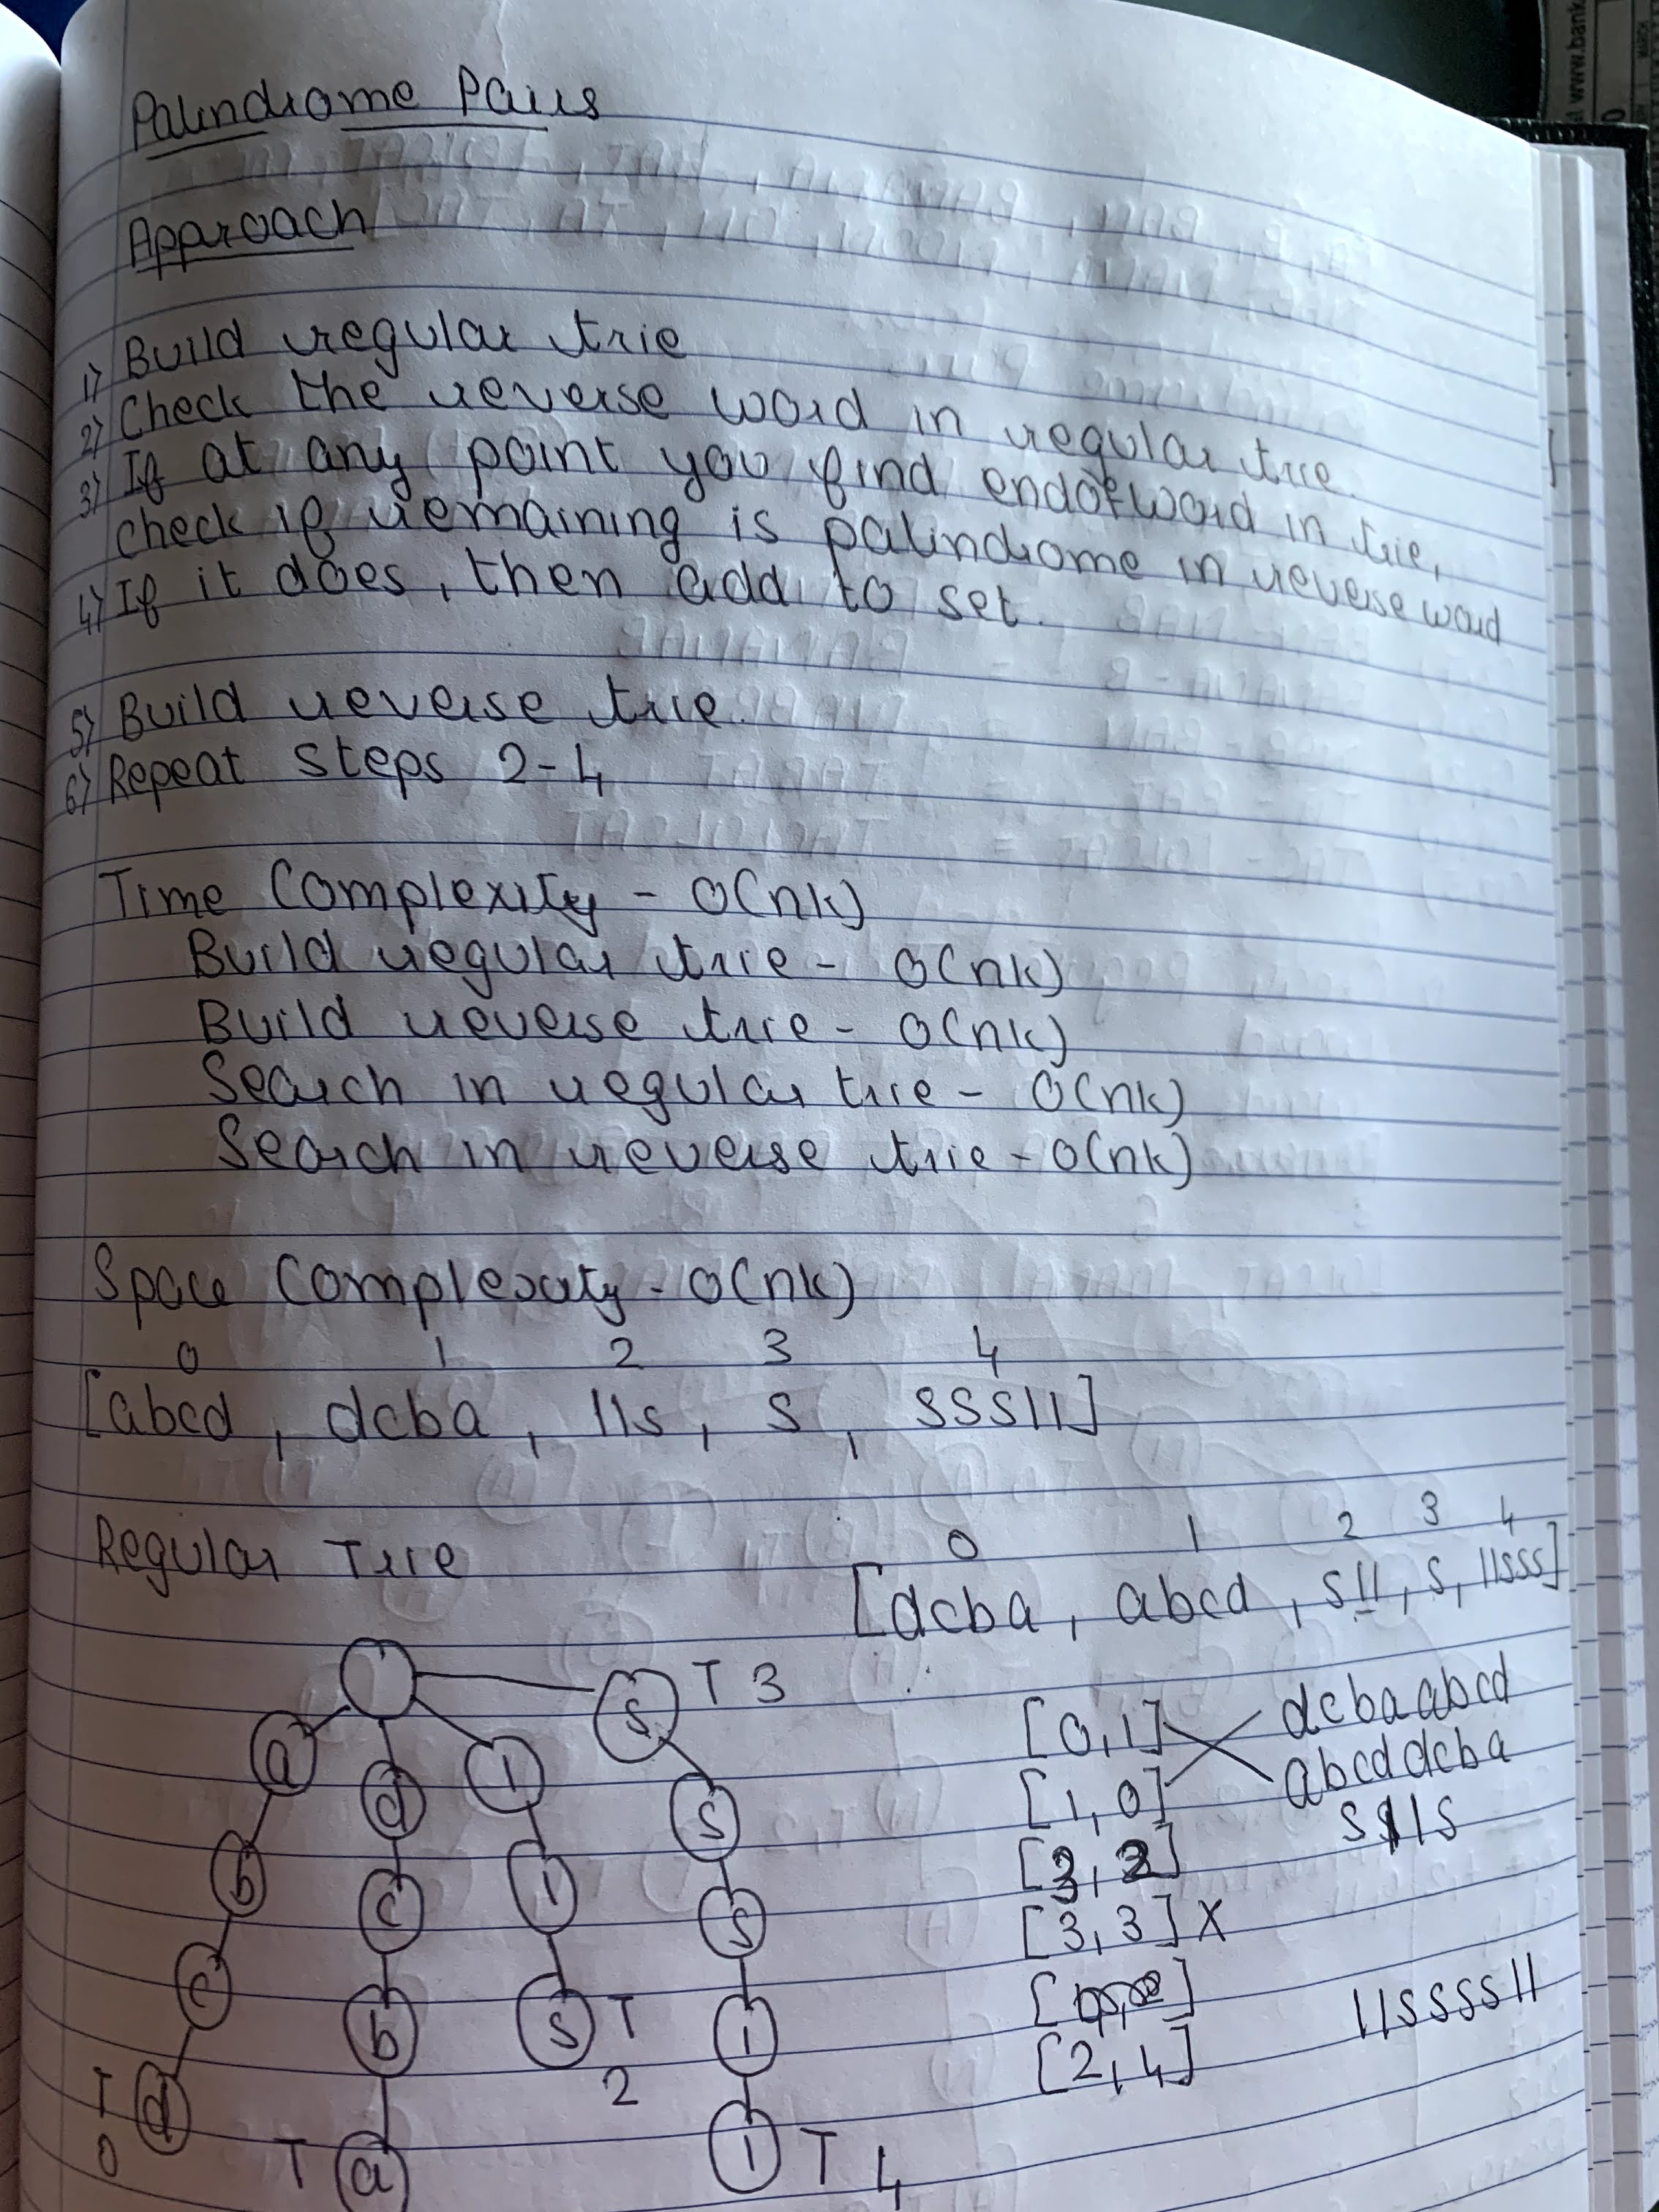 Palindrome Pairs
Approach
1) Build regular trie
2) Check the reverse word in regular trie.
3) If at any point you find endofword in trie,
check if remaining is palindrome in reverse word
4) If it does, then add to set.
5) Build reverse trie.
6) Repeat steps 2-4
Time Complexity - O(nk)
Build regular trie - O(nk)
Build reverse trie - O(nk)
Search in regular trie - O(nk)
Search in reverse trie - O(nk)
Space Complexity - O(nk)
0 1 2 3 4
[abcd, dcba, lls, s, sssll]
Regular Trie
0 1 2 3 4
[dcba, abcd, sll, s, llsss]
s T 3
[0,1] dcbaabcd
a d l
[1,0] abcddcba
s
slls
b c l
[3,2]
s
[3,3] X
c b s T
l
llssssll
2
[2,4]
T
0
d
T a
l T 4
www.bank
MARCH